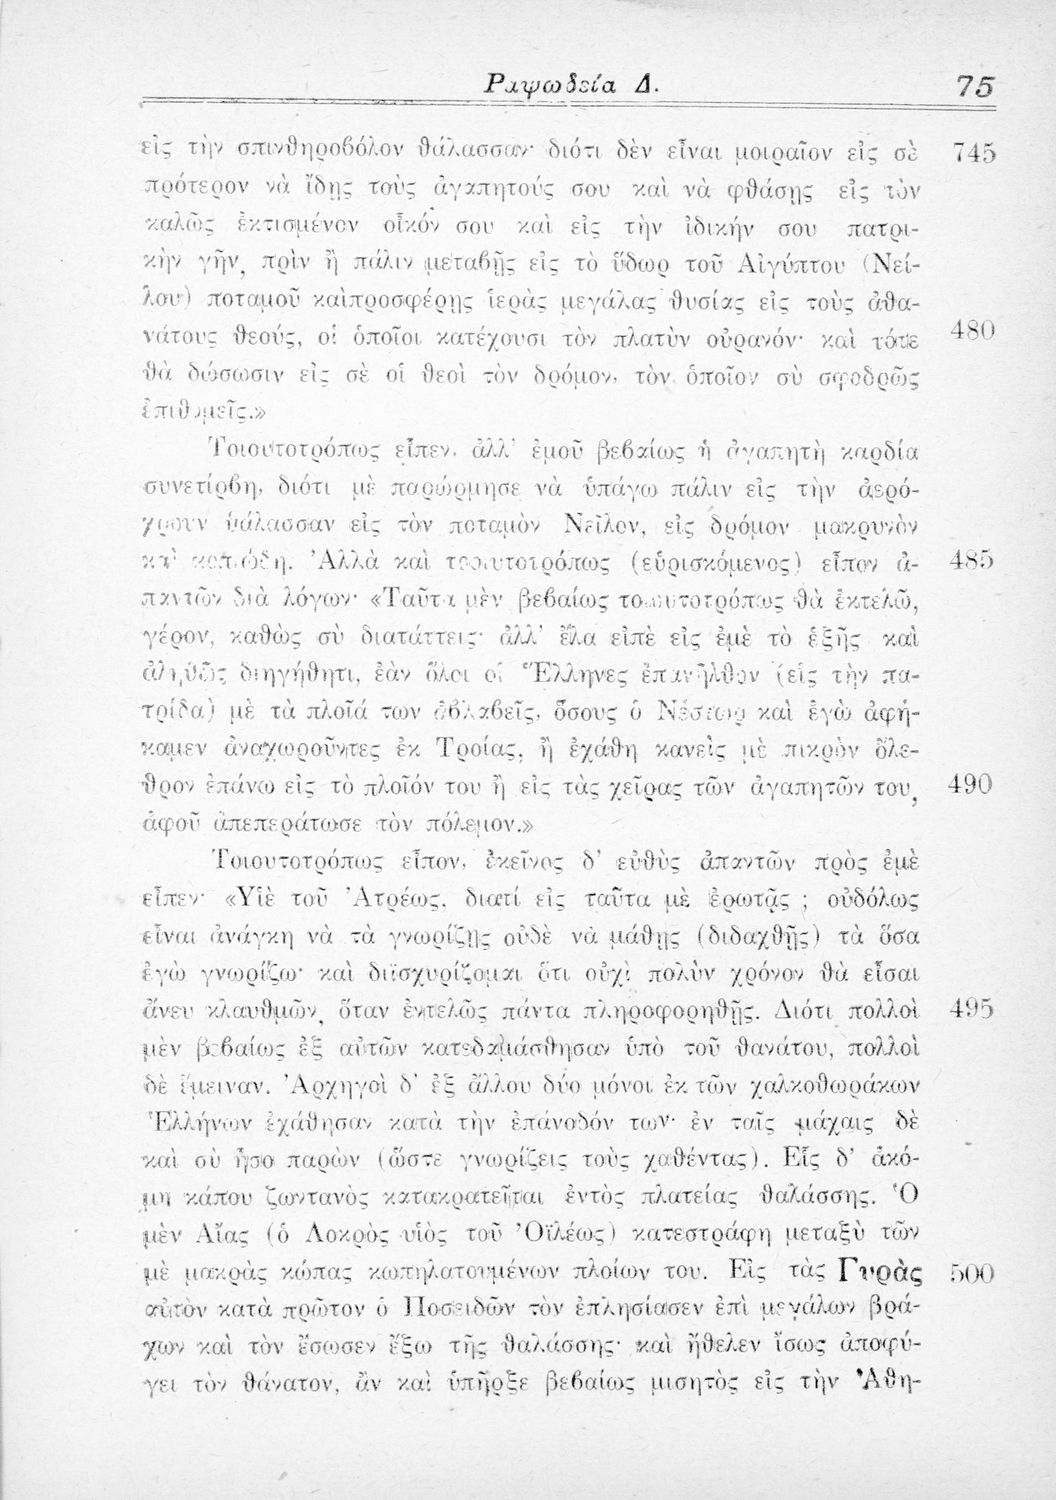 Ραψωδεία Δ. 75
εἰς τὴν σπινθηροβόλον θάλασσαν· διότι δὲν εἶναι μοιραῖον εἰς σὲ 745
πρότερον νὰ ἴδῃς τοὺς ἀγαπητούς σου καὶ νὰ φθάσῃς εἰς τὸν
καλῶς ἐκτισμένον οἶκόν σου καὶ εἰς τὴν ἰδικήν σου πατρι-
κὴν γῆν, πρὶν ἢ πάλιν μεταβῇς εἰς τὸ ὕδωρ τοῦ Αἰγύπτου (Νεί-
λου) ποταμοῦ καὶπροσφέρῃς ἱερὰς μεγάλας θυσίας εἰς τοὺς ἀθα-
νάτους θεούς, οἱ ὁποῖοι κατέχουσι τὸν πλατὺν οὐρανόν· καὶ τότε 480
θὰ δώσωσιν εἰς σὲ οἱ θεοὶ τὸν δρόμον, τὸν ὁποῖον σὺ σφοδρῶς
ἐπιθυμεῖς.»
Τοιουτοτρόπως εἶπεν, ἀλλ' ἐμοῦ βεβαίως ἡ ἀγαπητὴ καρδία
συνετίρβη, διότι μὲ παρώρμησε νὰ ὑπάγω πάλιν εἰς τὴν ἀερό-
χρουν θάλασσαν εἰς τὸν ποταμὸν Νεῖλον, εἰς δρόμον μακρυνὸν
καὶ κοπιώδη. Ἀλλὰ καὶ τοιουτοτρόπως (εὑρισκόμενος) εἶπον ἀ- 485
παντῶν διὰ λόγων· «Ταῦτα μὲν βεβαίως τοιουτοτρόπως θὰ ἐκτελῶ,
γέρον, καθὼς σὺ διατάττεις· ἀλλ' ἔλα εἰπὲ εἰς ἐμὲ τὸ ἑξῆς καὶ
ἀληθῶς διηγήθητι, ἐὰν ὅλοι οἱ Ἕλληνες ἐπανῆλθον (εἰς τὴν πα-
τρίδα) μὲ τὰ πλοῖά των ἀβλαβεῖς, ὅσους ὁ Νέστωρ καὶ ἐγὼ ἀφή-
καμεν ἀναχωροῦντες ἐκ Τροίας, ἢ ἐχάθη κανεὶς μὲ πικρὸν ὄλε-
θρον ἐπάνω εἰς τὸ πλοῖόν του ἢ εἰς τὰς χεῖρας τῶν ἀγαπητῶν του, 490
ἀφοῦ ἀπεπεράτωσε τὸν πόλεμον.»
Τοιουτοτρόπως εἶπον, ἐκεῖνος δ' εὐθὺς ἀπαντῶν πρὸς ἐμὲ
εἶπεν· «Υἱὲ τοῦ Ἀτρέως, διατί εἰς ταῦτα μὲ ἐρωτᾷς ; οὐδόλως
εἶναι ἀνάγκη νὰ τὰ γνωρίζῃς οὐδὲ νὰ μάθῃς (διδαχθῇς) τὰ ὅσα
ἐγὼ γνωρίζω· καὶ διϊσχυρίζομαι ὅτι οὐχὶ πολὺν χρόνον θὰ εἶσαι
ἄνευ κλαυθμῶν, ὅταν ἐντελῶς πάντα πληροφορηθῇς. Διότι πολλοὶ 495
μὲν βεβαίως ἐξ αὐτῶν κατεδαμάσθησαν ὑπὸ τοῦ θανάτου, πολλοὶ
δὲ ἔμειναν. Ἀρχηγοὶ δ' ἐξ ἄλλου δύο μόνοι ἐκ τῶν χαλκοθωράκων
Ἑλλήνων ἐχάθησαν κατὰ τὴν ἐπάνοδόν των· ἐν ταῖς μάχαις δὲ
καὶ σὺ ἦσο παρὼν (ὥστε γνωρίζεις τοὺς χαθέντας). Εἷς δ' ἀκό-
μη κάπου ζωντανὸς κατακρατεῖται ἐντὸς πλατείας θαλάσσης. Ὁ
μὲν Αἴας (ὁ Λοκρὸς υἱὸς τοῦ Ὀϊλέως) κατεστράφη μεταξὺ τῶν
μὲ μακρὰς κώπας κωπηλατουμένων πλοίων του. Εἰς τὰς Γυρὰς 500
αὐτὸν κατὰ πρῶτον ὁ Ποσειδῶν τὸν ἐπλησίασεν ἐπὶ μεγάλων βρά-
χων καὶ τὸν ἔσωσεν ἔξω τῆς θαλάσσης· καὶ ἤθελεν ἴσως ἀποφύ-
γει τὸν θάνατον, ἂν καὶ ὑπῆρξε βεβαίως μισητὸς εἰς τὴν Ἀθη-